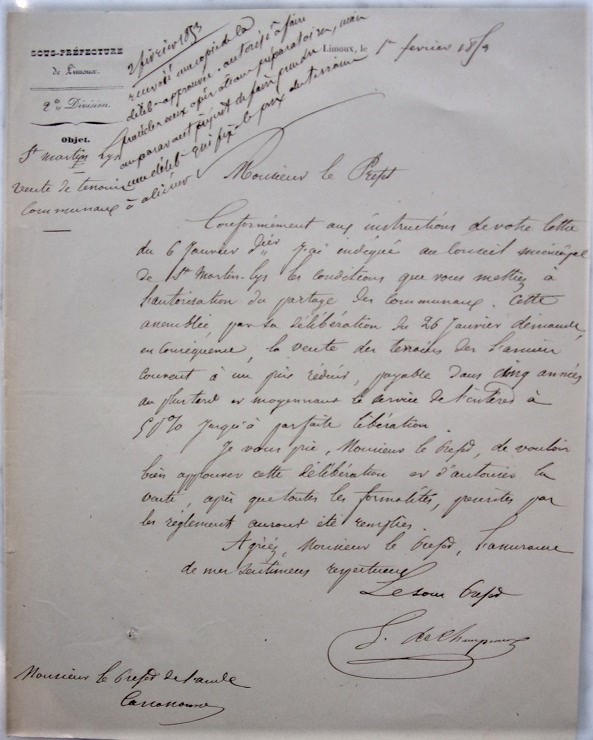 SOUS-PRÉFECTURE
de Limoux.
2me Division.
Objet.
St Martin Lys
Vente de terrains
communaux à aliéner
2 février 1853
renvoyé une copie de la
délib. approuvée. autorisé à faire
procéder aux opérations préparatoires, mais
auparavant prendre
une délib. qui fixe le prix des terrains
Limoux, le 1er février 185
Monsieur le Préfet
Conformément aux instructions de votre lettre
du 6 Janvier dier j'ai indiqué au Conseil municipal
de St Martin-Lys les conditions que vous mettiez à
l'autorisation du partage des communaux. Cette
assemblée, par sa délibération du 26 Janvier demande,
en conséquence, la vente des terrains de l'ancien
couvent à un prix réduit, payable dans cinq années
au plus tard et moyennant le service de l'intérêt à
5 p% jusqu'à parfaite libération.
Je vous prie, Monsieur le Préfet, de vouloir
bien approuver cette délibération et d'autoriser la
vente, après que toutes les formalités, prescrites par
les règlement auront été remplies.
Agréez, Monsieur le Préfet, l'assurance
de mes sentimens respectueux
Le sous Préfet
Monsieur le Préfet de l'aude
Carcassonne